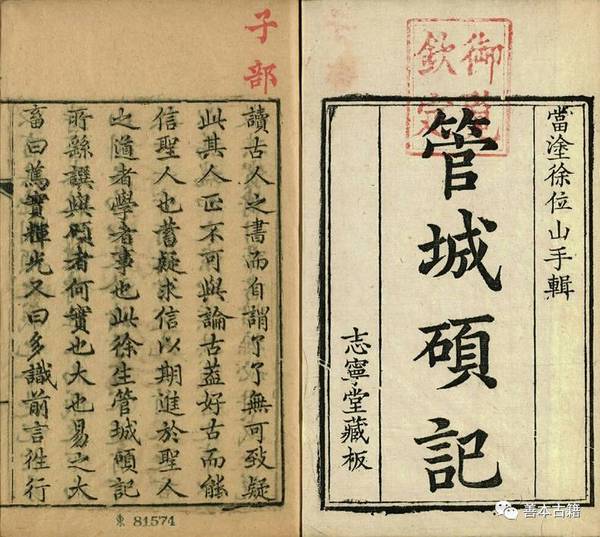 御覽
欽定
當塗徐位山手輯
管城碩記
志寧堂藏板
子部
讀古人之書而自謂了了無可致疑
此其人正不可與論古蓋好古而能
信聖人也蓄疑求信以期進於聖人
之道者學者事也此徐生管城碩記
所繇譔與碩者何實也大也易之大
畜曰篤實輝光又曰多識前言徃行
東 81574
善本古籍